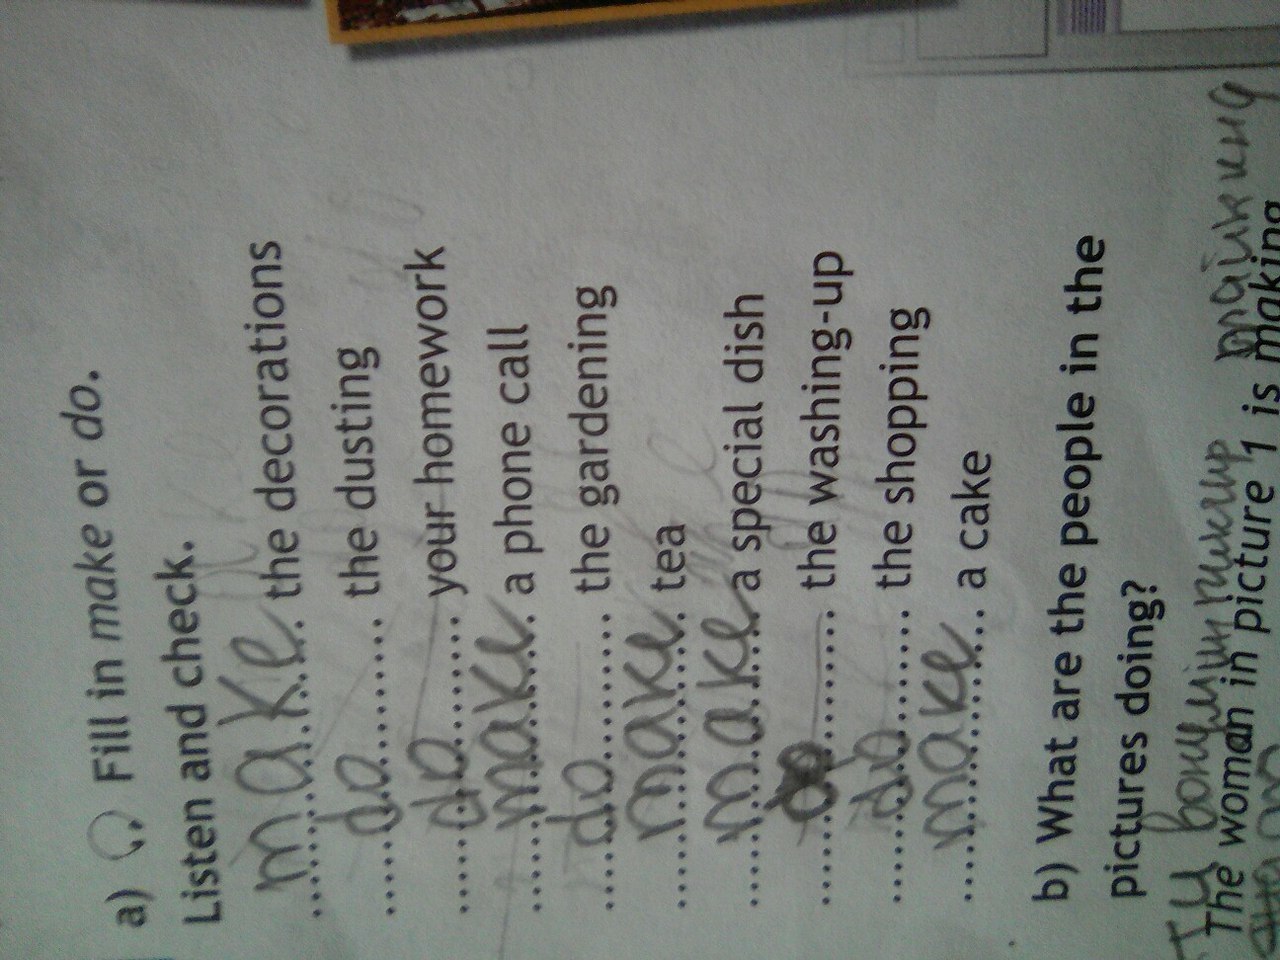 a) Fill in make or do.
Listen and check.
make the decorations
do the dusting
do your homework
make a phone call
do the gardening
make tea
make a special dish
do the washing-up
do the shopping
make a cake
b) What are the people in the
pictures doing?
The woman in picture 1 is making